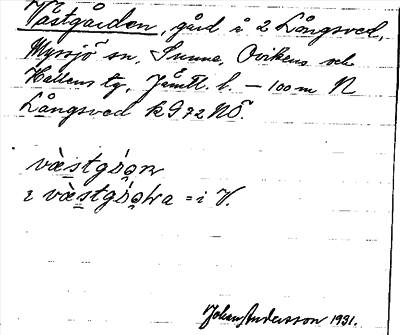 Västgården, gård å 2 Långsved,
Myssjö sn, Sunne, Ovikens och
Hallens tg, Jämtl. l. – 100 m N
Långsved k 972 NÖ.
væ̀stgɔ́ɔn
i væ̀stgɔ́ɔɹa = i V.
Johan Andersson 1931.